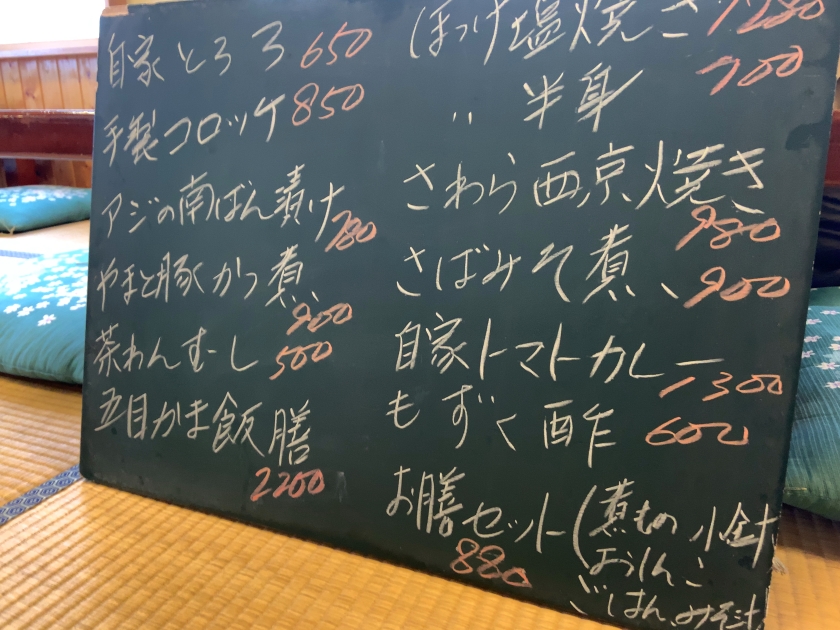 自家とろろ 650
手製コロッケ 850
アジの南ばん漬け
780
やまと豚かつ煮
900
茶わんむし 500
五目かま飯膳
2200
ほっけ塩焼き 1280
〃 半身 700
さわら西京焼き
980
さばみそ煮 900
自家トマトカレー
1300
もずく酢 600
お膳セット(煮もの 小鉢
880 おしんこ
ごはん、みそ汁